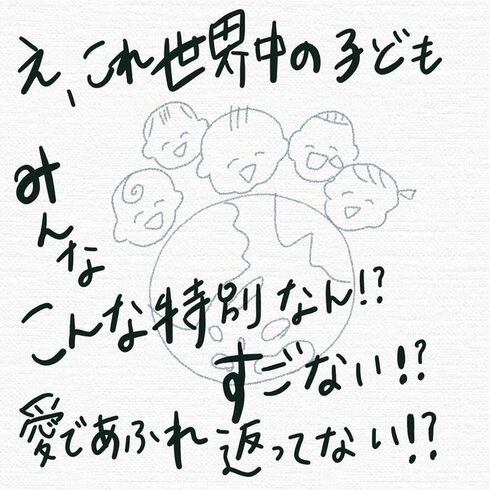 え、これ世界中の子ども
みんな
こんな特別なん!?
すごない!?
愛であふれ返ってない!!?